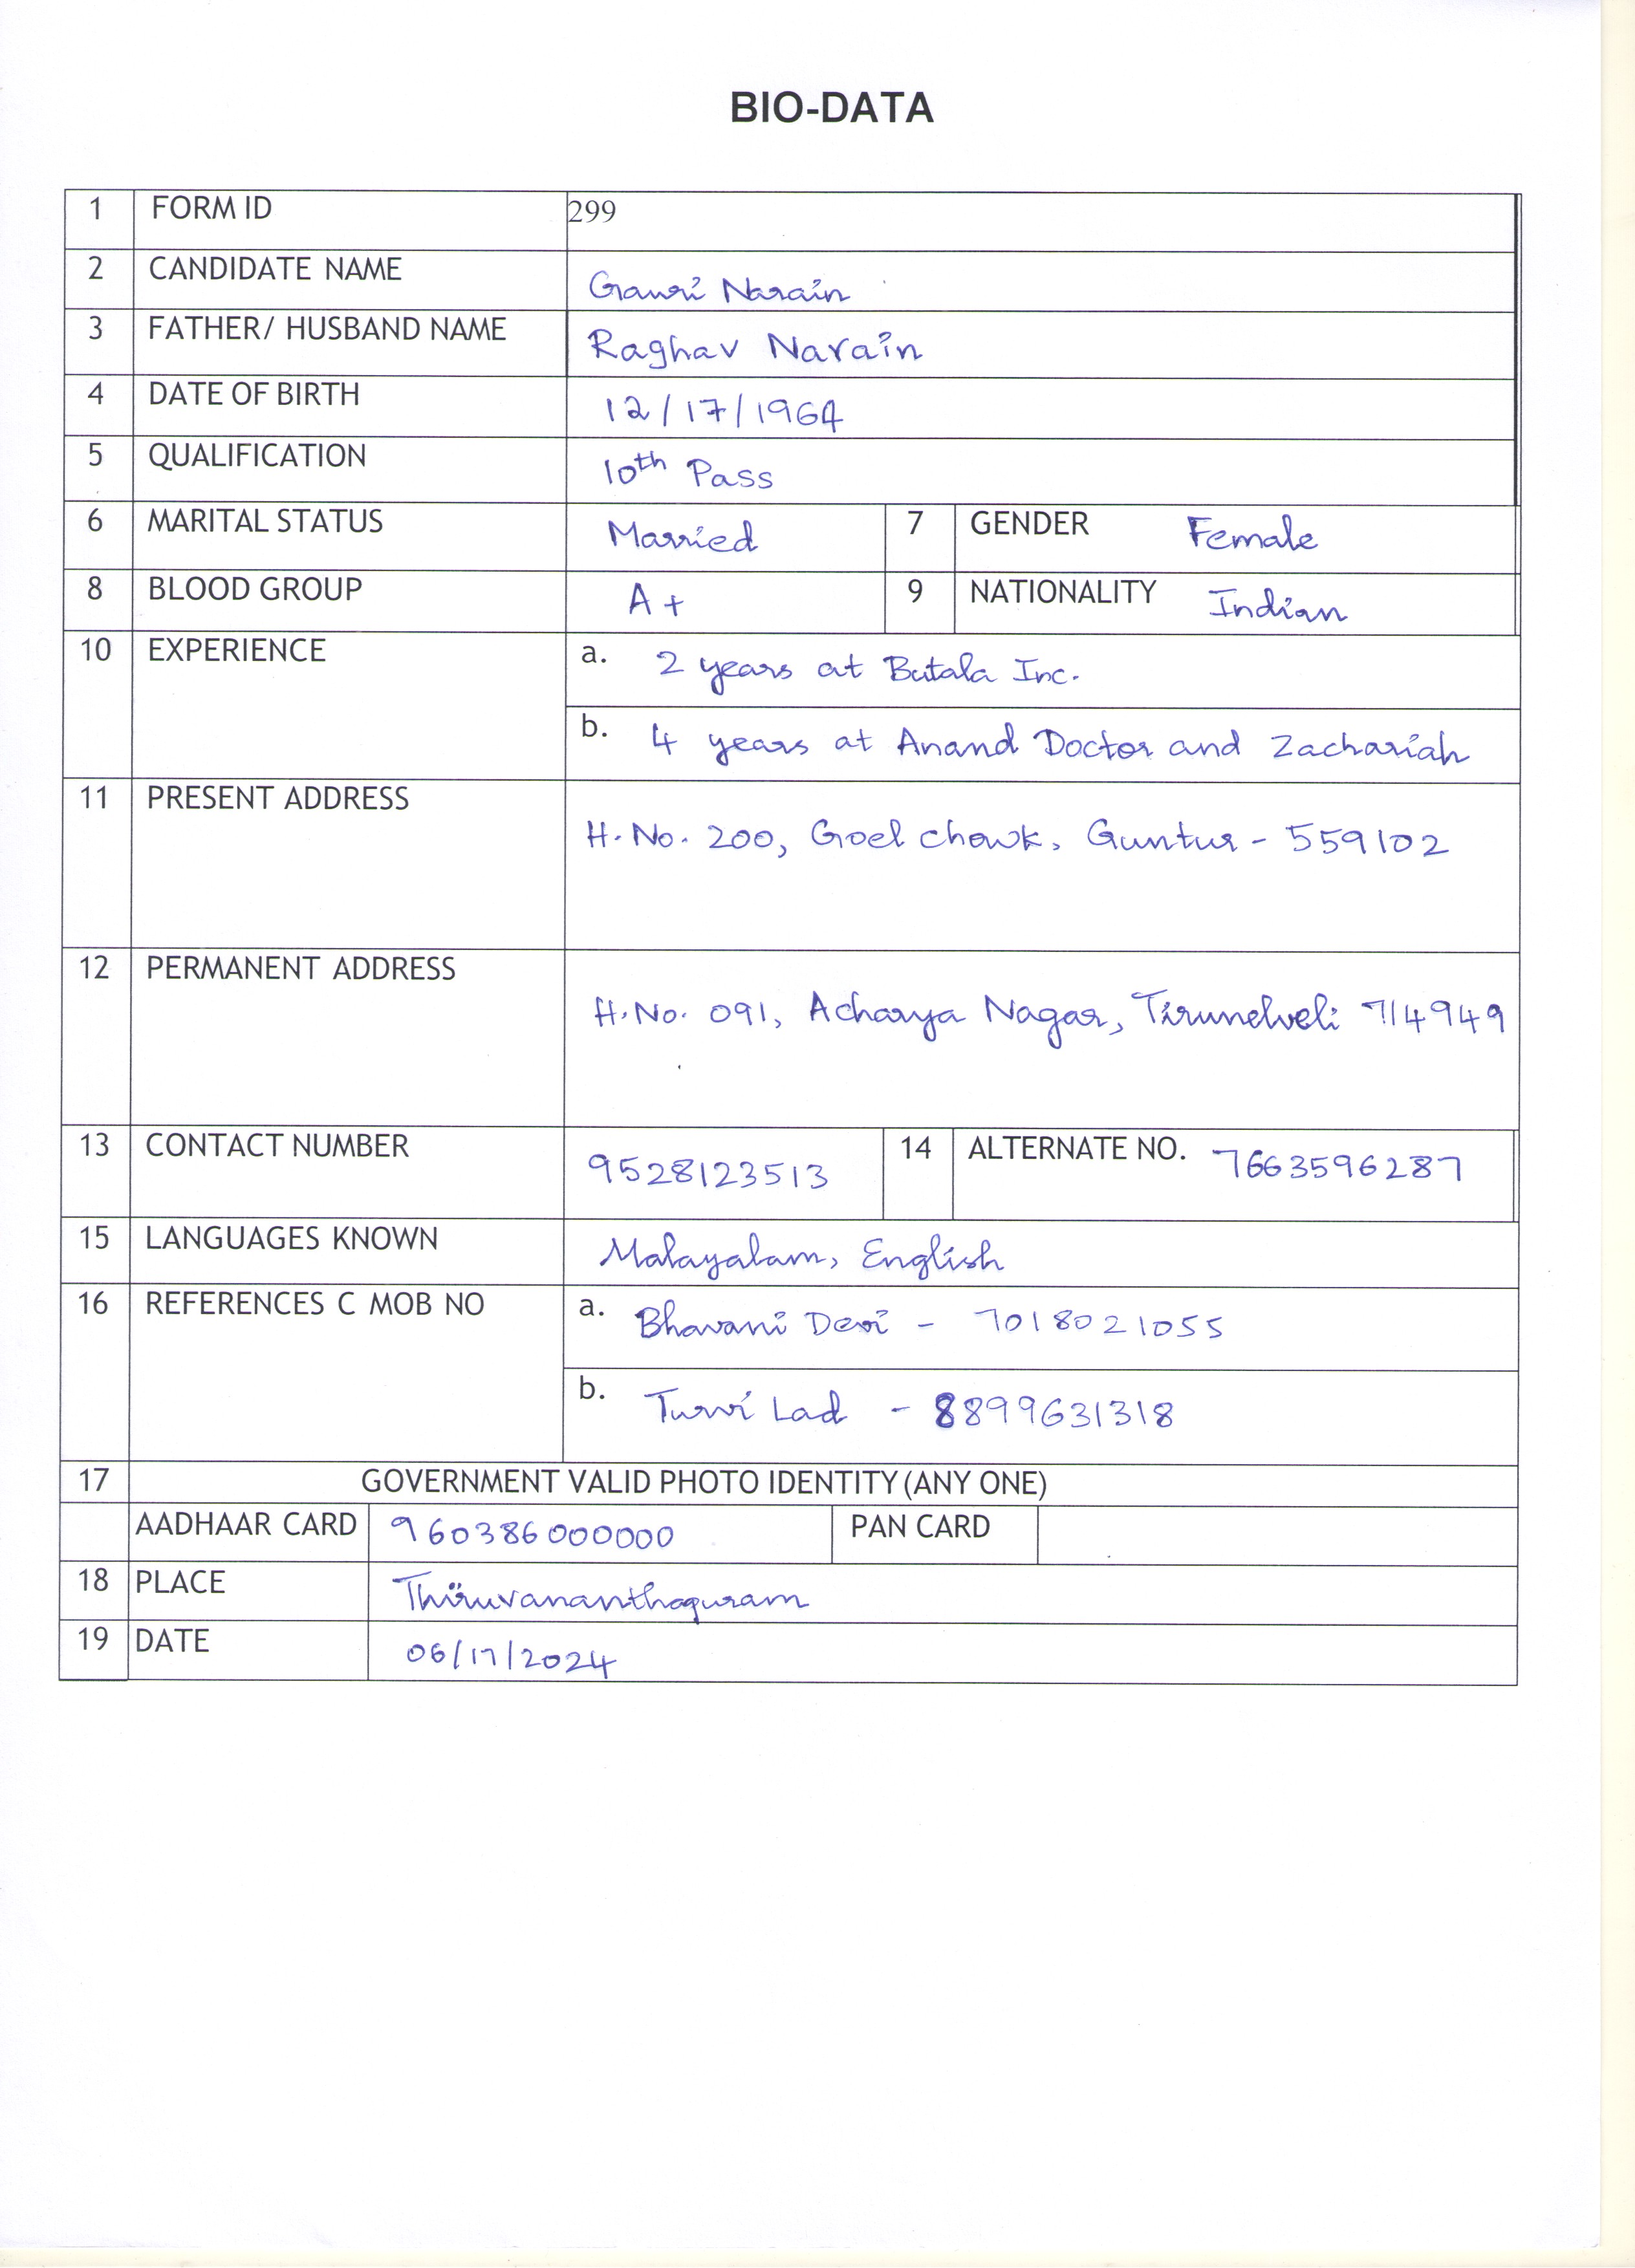 BIO-DATA
1 FORM ID 299
2 CANDIDATE NAME Gauri Narain
3 FATHER/ HUSBAND NAME Raghav Narain
4 DATE OF BIRTH 12/17/1964
5 QUALIFICATION 10th Pass
6 MARITAL STATUS Married 7 GENDER Female
8 BLOOD GROUP A+ 9 NATIONALITY Indian
10 EXPERIENCE a. 2 years at Butala Inc.
b. 4 years at Anand Doctor and Zachariah
11 PRESENT ADDRESS H.No. 200, Goel chowk, Guntur - 559102
12 PERMANENT ADDRESS H.No. 091, Acharya Nagar, Tirunelveli 714949
13 CONTACT NUMBER 9528123513 14 ALTERNATE NO. 7663596287
15 LANGUAGES KNOWN Malayalam, English
16 REFERENCES C MOB NO a. Bhavani Devi - 7018021055
b. Turvi Lad - 8899631318
17 GOVERNMENT VALID PHOTO IDENTITY (ANY ONE)
AADHAAR CARD 960386000000 PAN CARD
18 PLACE Thiruvananthapuram
19 DATE 06/17/2024